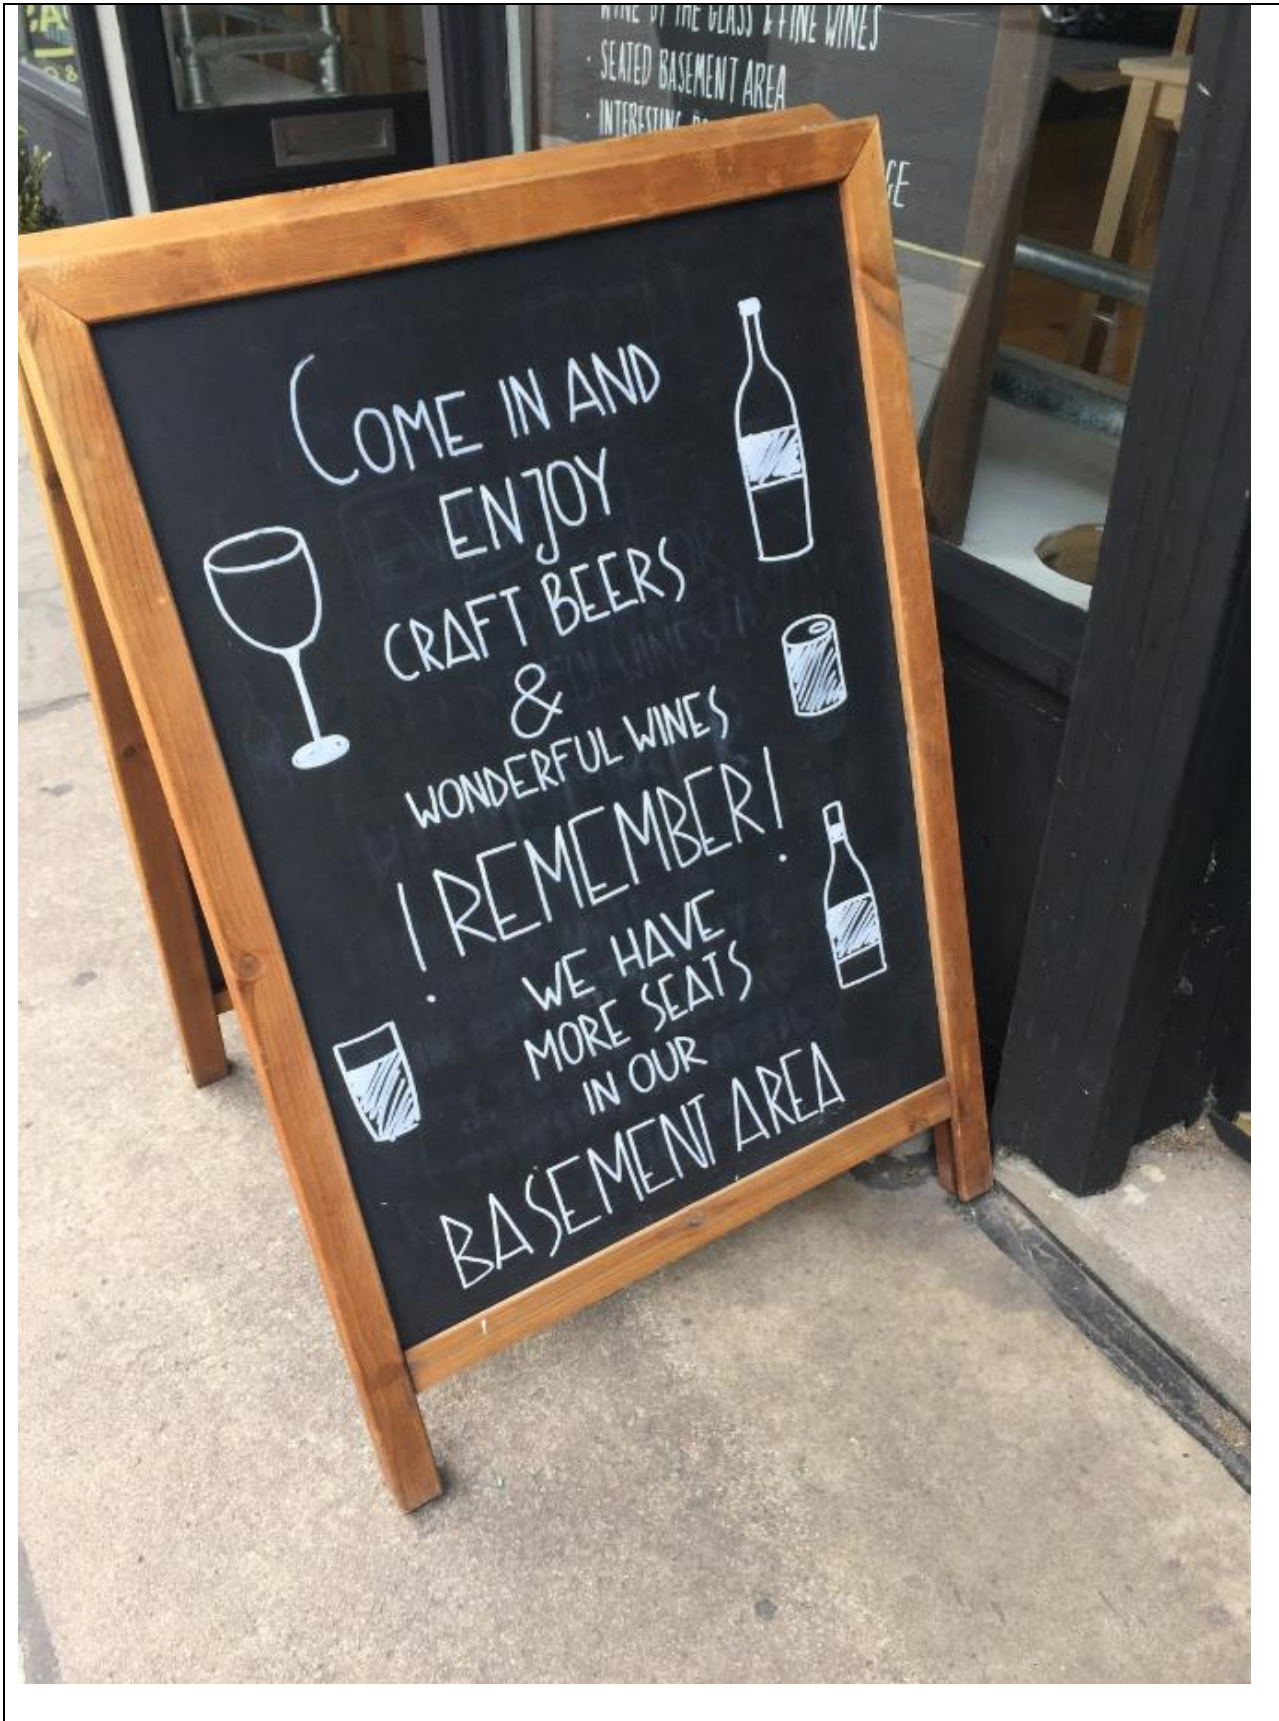 WINE BY THE GLASS & FINE WINES
· SEATED BASEMENT AREA
· INTERESTING
GE
COME IN AND
ENJOY
CRAFT BEERS
&
WONDERFUL WINES
! REMEMBER!
WE HAVE
MORE SEATS
IN OUR
BASEMENT AREA